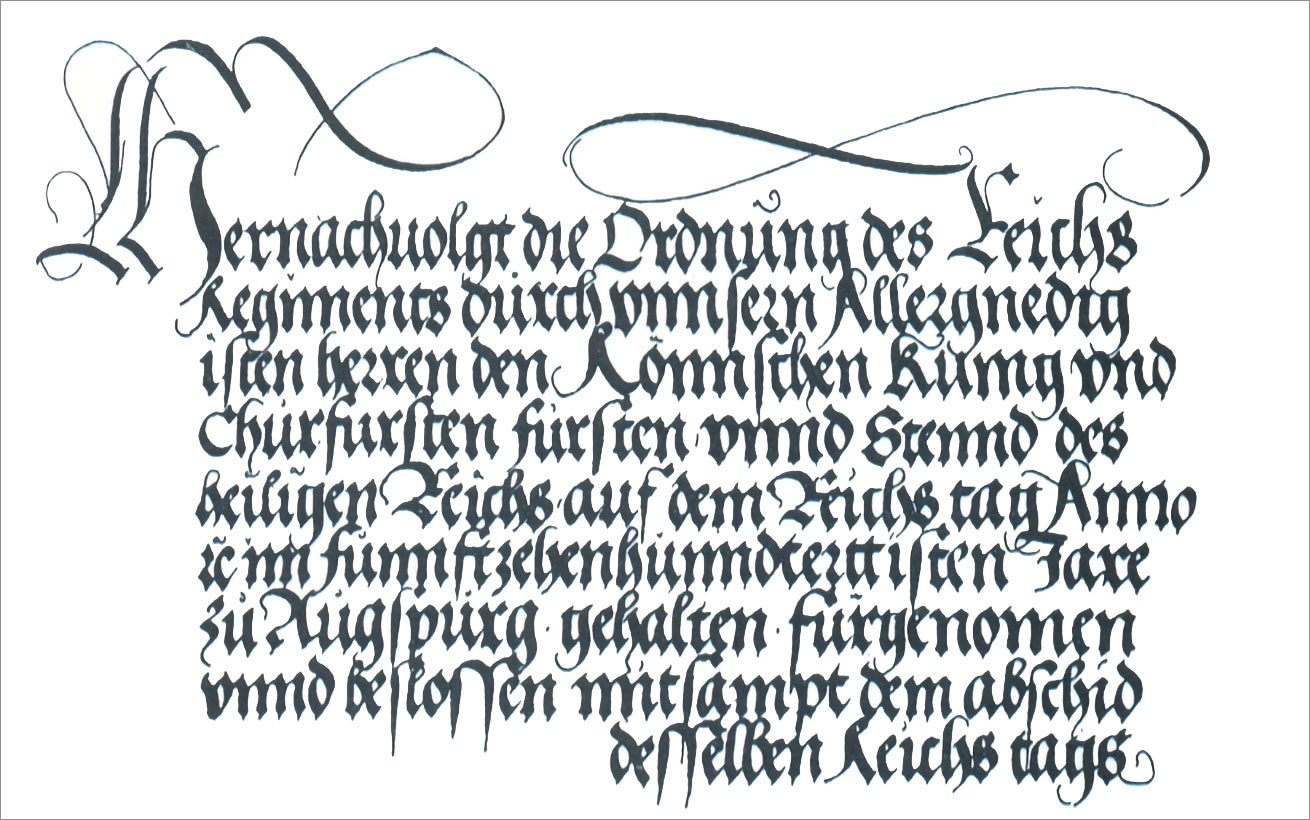 Hernachuolgt die Ordnung des Reichs
Regiments durch vnnsern Allergnedig
isten herren den Römischen Kunig vnd
Churfursten fursten vnnd Stennd des
heiligen Reichs auf dem Reichs tag Anno
ꝛc̃ im funnftzehenhunndterttisten Jare
zu Augspurg · gehalten · furgenomen
vnnd beslossen mitsampt dem abschid
desselben Reichs tags